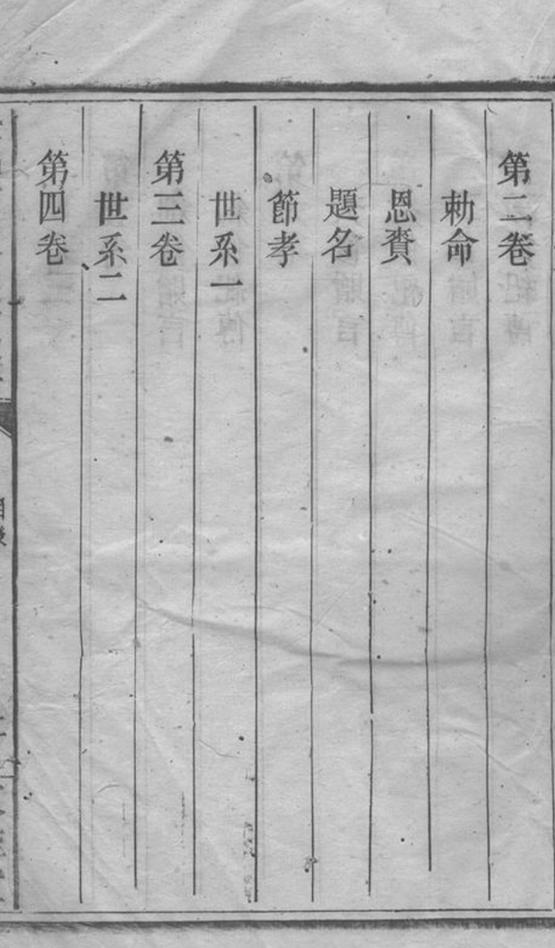 第二卷
勅命
恩賚
題名
節孝
世系一
第三卷
世系二
第四卷